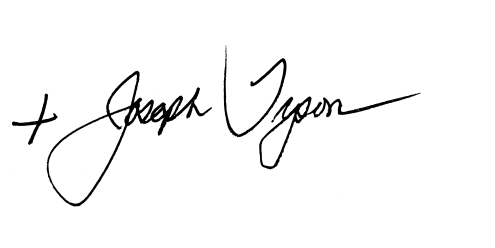 + Joseph Tyson